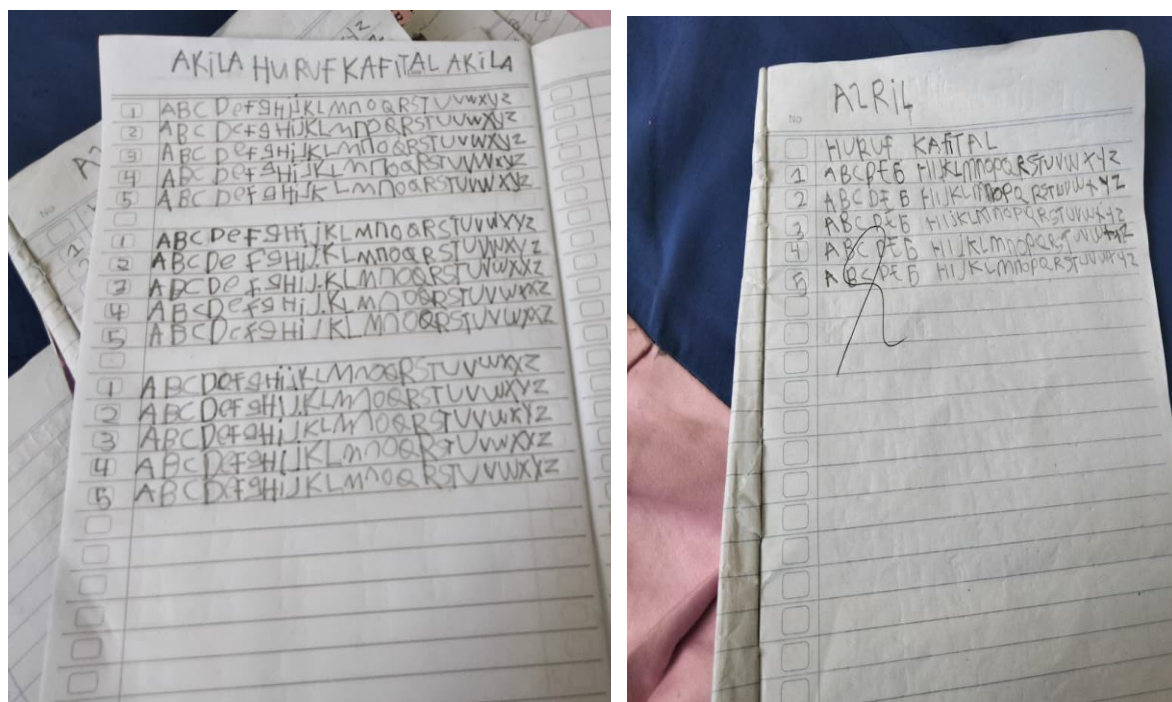 AKiLA HURUF KAFITAL AKiLA
1 ABCDefghijKLMnOQRSTUVwXYZ
2 ABCDefgHiJKLMnOQRSTUVwXYZ
3 ABCDefgHiJKLMnOQRSTUVwXYZ
4 ABCDefgHiJKLMnOQRSTUVwXYZ
5 ABCDefgHiJK LMnOQRSTUVwXYZ
1 ABCDefgHiJKLMnOQRSTUVwXYZ
2 ABCDefgHiJ.KLMnOQRSTUVwXYZ
3 ABCDefgHiJ.KLMnOQRSTUVwXXZ
4 ABCDefgHiJ.KLMnOQRSTUVwXXZ
5 ABCDefgHiJKLMnOQRSTUVwXXZ
1 ABCDefgHiJKLMnOQRSTUVwXYZ
2 ABCDefgHiJ.KLMnOQRSTUVwXYZ
3 ABCDefgHiJKLMnOQRSTUVwXYZ
4 ABCDefgHiJKLMnOQRSTUVwXXZ
5 ABCDefgHiJKLMnOQRSTUVwXYZ
AZRiL
No
HURUF KAFITAL
1 ABCDEG HIJKLMnOPQRSTUVWXYZ
2 ABCDEG HIJKLMnOPQRSTUVWXYZ
3 ABCDEG HIJKLMnOPQRSTUVWXYZ
4 ABCDEG HIJKLMnOPQRSTUVWXYZ
5 ABCDEG HIJKLMnOPQRSTUVWXYZ